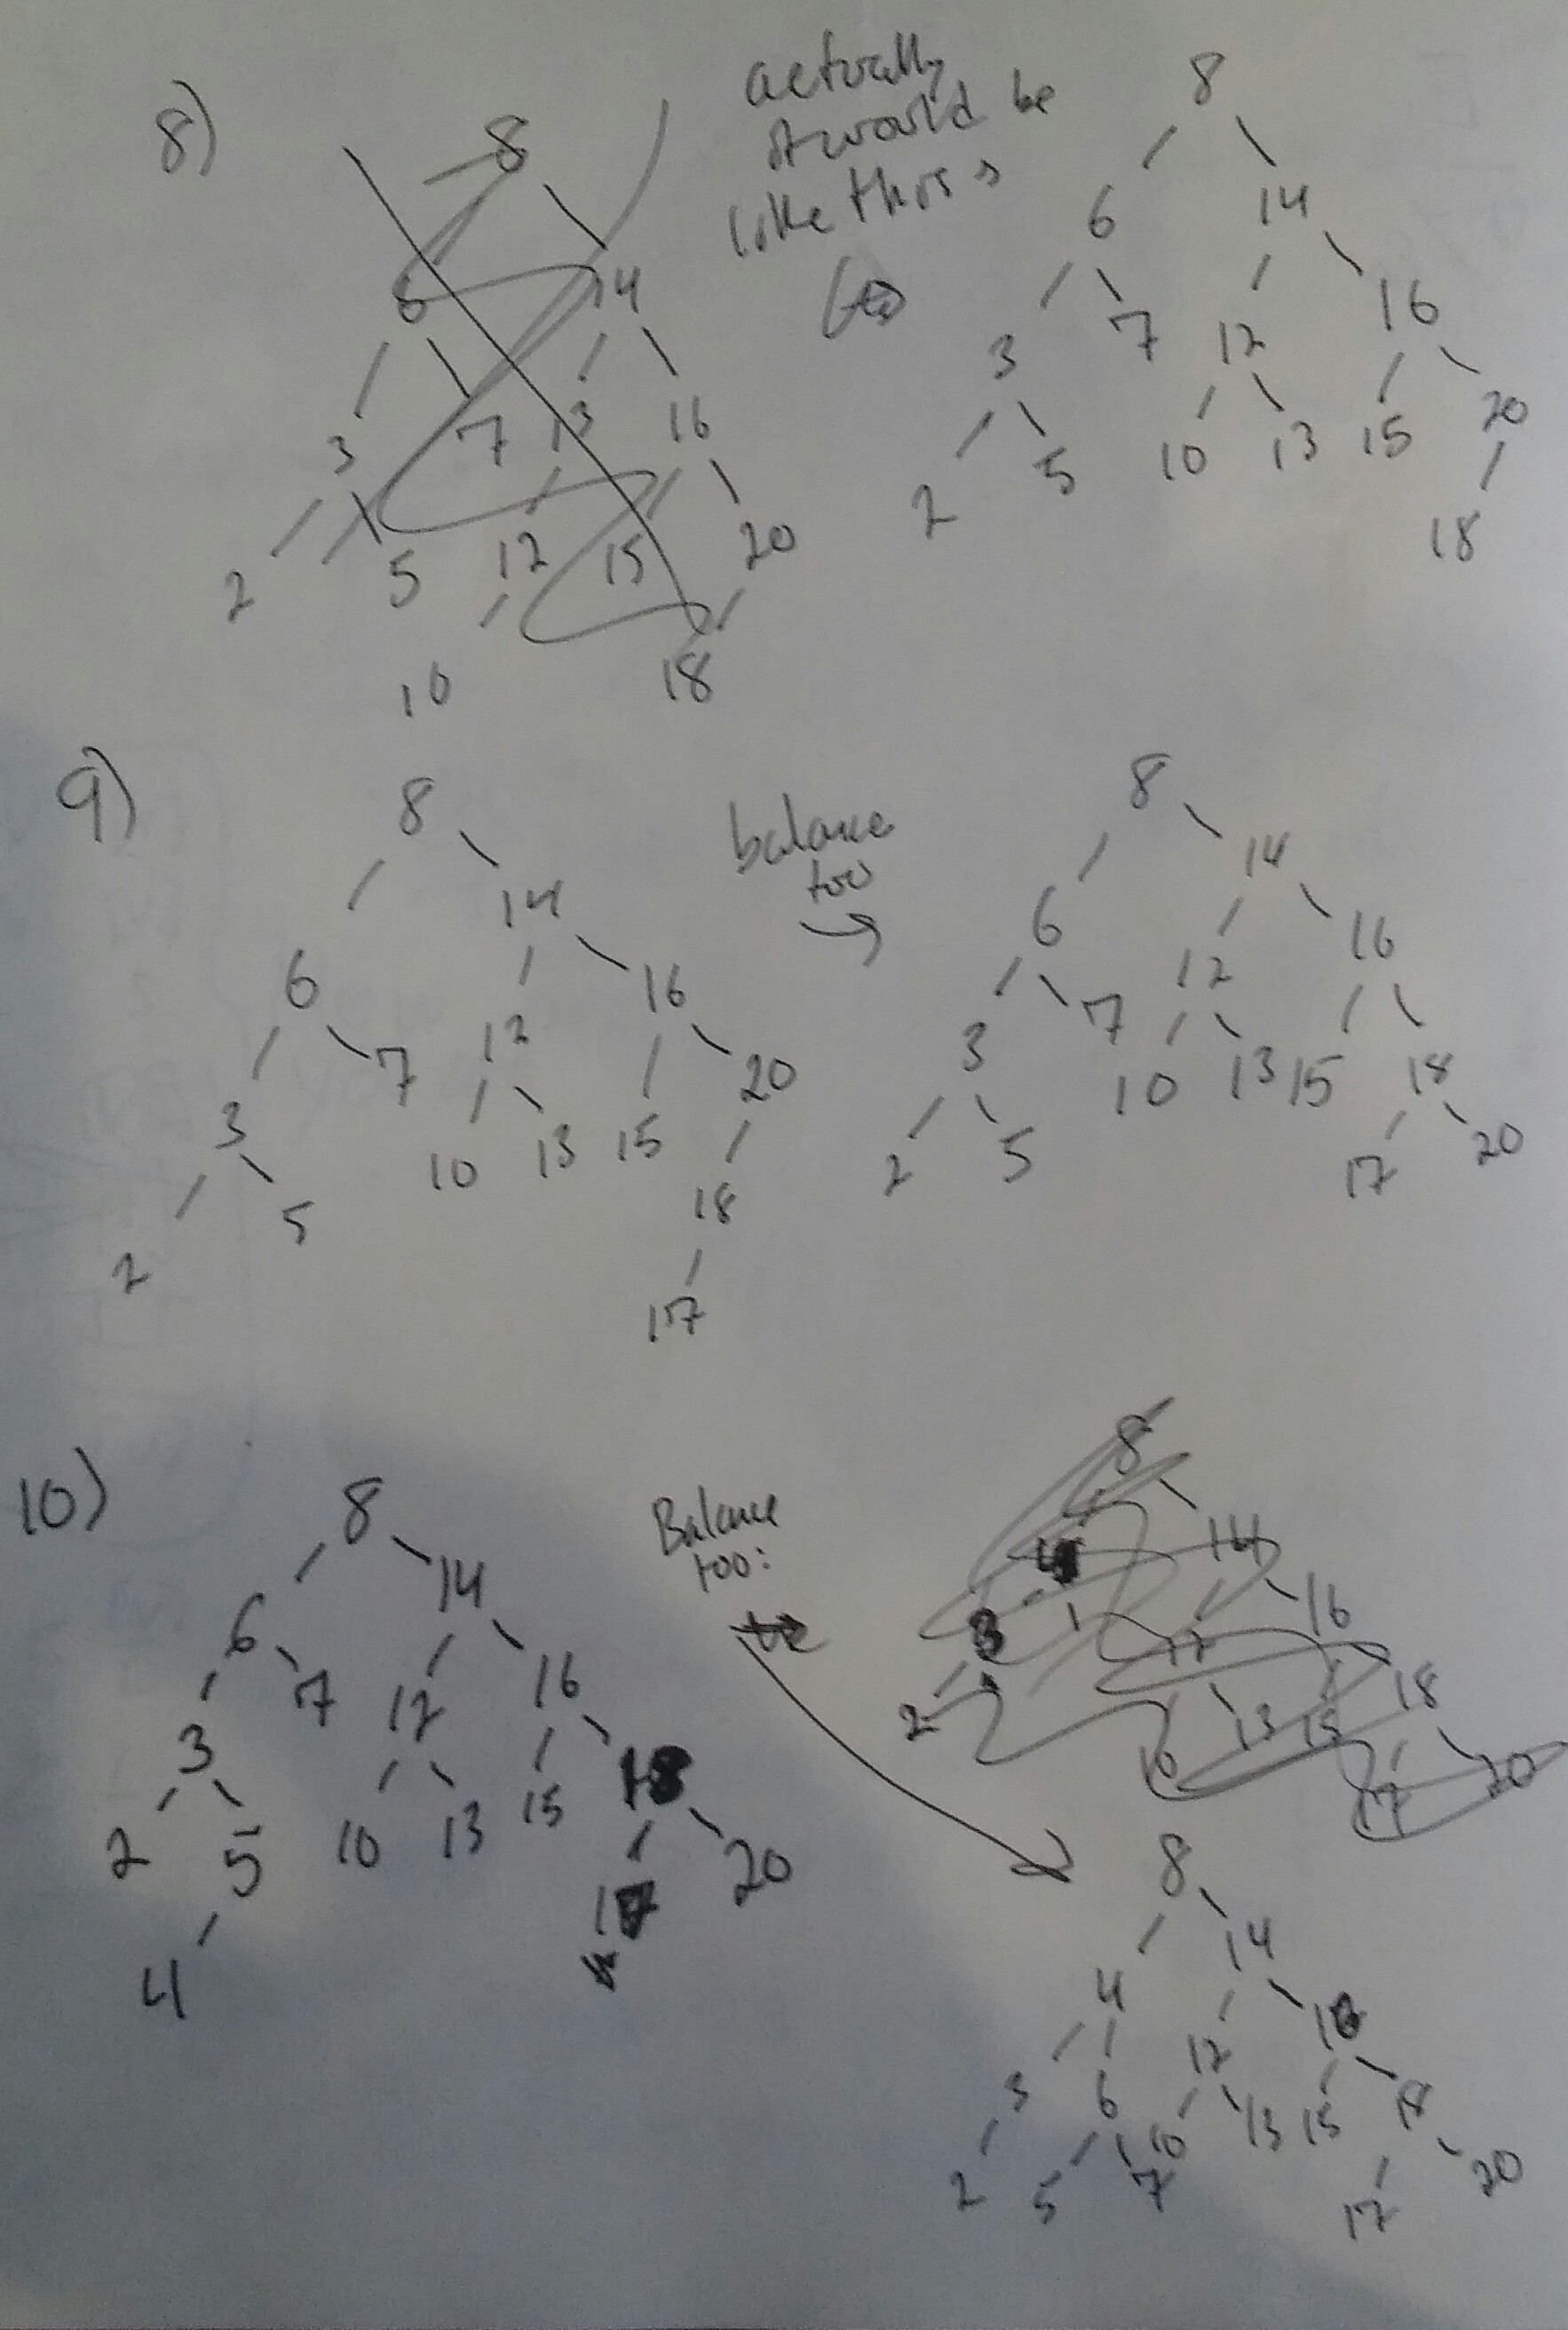 8)
8
6 14
3 7 13 16
2 5 12 15 20
10 18
actually
it would be
like this
8
6 14
3 7 12 16
2 5 10 13 15 20
18
9)
8
6 14
3 7 12 16
2 5 10 13 15 20
18
17
balance
too
8
6 14
3 7 12 16
2 5 10 13 15 18
17 20
10)
8
6 14
3 7 12 16
2 5 10 13 15 18
4 17 20
Balance
too:
8
4 14
3 12 16
2 10 13 15 18
17 20
8
4 14
3 6 12 16
2 5 7 10 13 15 18
17 20